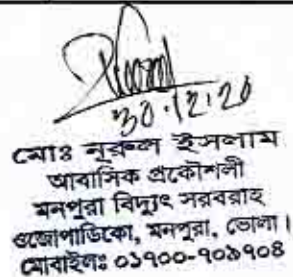 ৩০.১২.২০
মোঃ নুরুল ইসলাম
আবাসিক প্রকৌশলী
মনপুরা বিদ্যুৎ সরবরাহ
ওজোপাডিকো, মনপুরা, ভোলা।
মোবাইলঃ ০১৭০০-৭০৯৭০৪